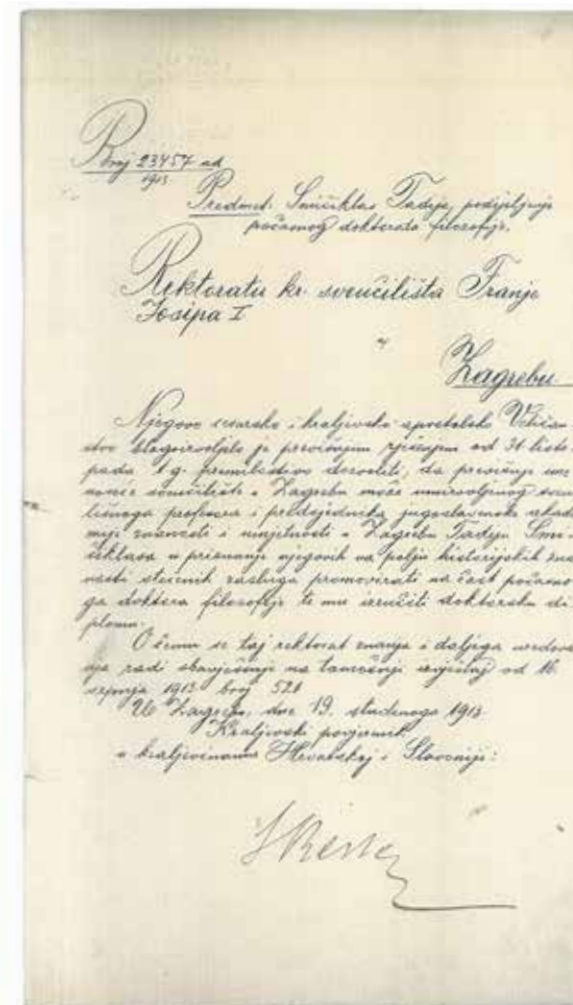 Broj 23457 ad
1913
Predmet: Smičiklas Tadija, podijeljenje
počasnog doktorata filozofije.
Rektoratu kr. sveučilišta Franje
Josipa I
u
Zagrebu
Njegovo cesarsko i kraljevsko apostolsko Veličan-
stvo blagoizvoljelo je previšnjim rješenjem od 31 listo-
pada t. g. premilostivo dozvoliti, da
sveučilište u Zagrebu može umirovljenog sveuči-
lišnoga profesora i predsjednika jugoslavenske akade-
mije znanosti i umjetnosti u Zagrebu Tadiju Smi-
čiklasa u priznanje njegovih na polju historijskih zna-
nosti stečenih zasluga promovirati na čast počasno-
ga doktora filozofije te mu izručiti doktorsku di-
plomu.
O čemu se taj rektorat znanja i daljega uredova-
nja radi obavješćuje na tamošnji izvještaj od 16.
srpnja 1913 broj 521
U Zagrebu, dne 19. studenoga 1913.
Kraljevski povjerenik
u kraljevinama Hrvatskoj i Slavoniji: